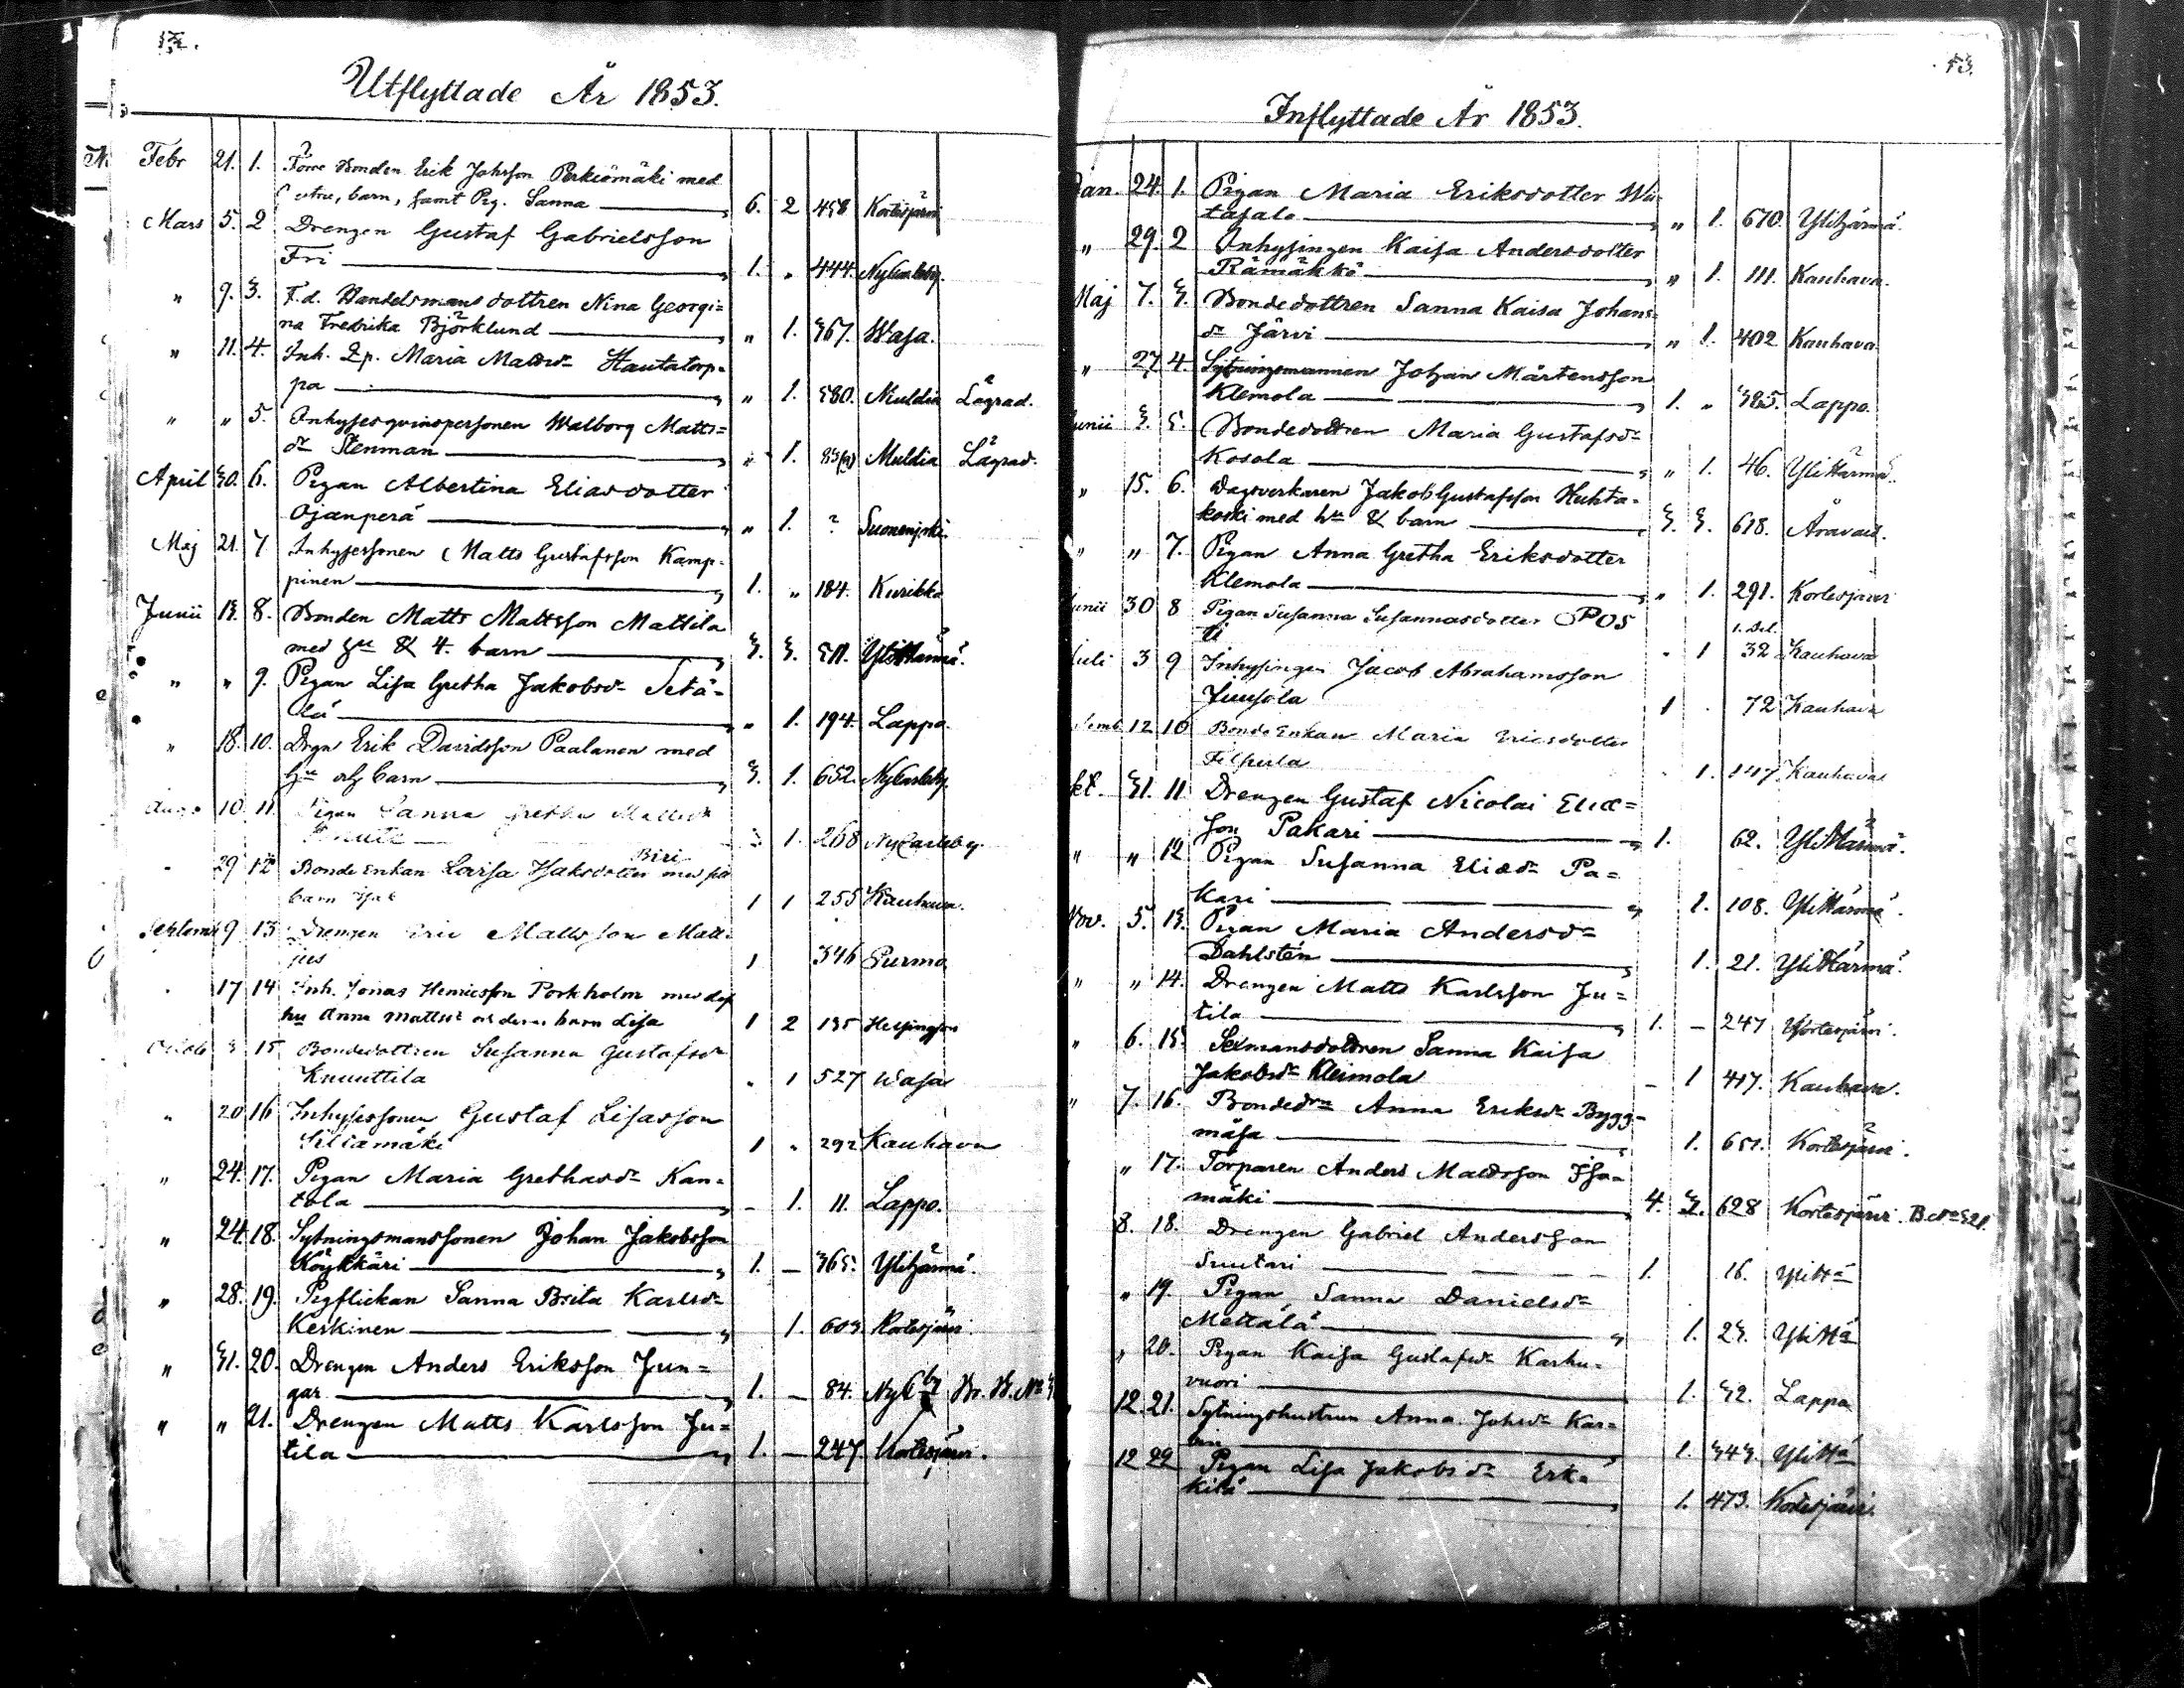 Utflyttade År 1853.
Febr 21. 1. Förre Bonden Erik Johsson Perkiömäki med
barn, samt Pig. Sanna 6. 2 458 Kortesjärvi
Mars 5. 2 Drengen Gustaf Gabrielsson
Fri 1. „ 444. NyCarleby.
„ 9. 3. F.d. Handelsmansdottren Nina Georgi=
na Fredrika Björklund „ 1. 367. Wasa.
„ 11. 4. Inh. Qp. Maria Mattsdr Hautatorp=
pa „ 1. 380. Muldia Lågrad.
„ „ 5. Inhysesqvinspersonen Walborg Matts=
dr Stenman „ 1. Muldia Lågrad.
April 30. 6. Pigan Albertina Eliasdotter
Ojanperä „ 1. ?
Maj 21. 7 Inhysessonen Matts Gustafsson Kamp=
pinen 1. „ 184. Kurikka
Junii 13. 8. Bonden Matts Mattsson Mattila
med hu & 4. barn 3. 3. Ylihärmä.
„ „ 9. Pigan Lisa Gretha Jakobsdr Setä=
lä „ 1. 194. Lappo.
„ 18. 10. Drgn Erik Davidsson Paalanen med
hu och barn 3. 1. 652. NyCarleby.
Aug. 10. 11 Pigan Sanna Gretha Mattsdr
1. 268 NyCarleby.
29 12 Bonde Enkan Lovisa Isaksdotter Biri med
barn 1 1 255 Kauhava.
Septemb 9 13 Drengen Eric Mattsson Matt=
jus 1 346 Purmo
17 14 Inh. Jonas Henricsson Porkholm med
hu Anna Mattsdr barn Lisa 1 2 135 Helsingfors
Octob 3 15 Bondedottren Susanna Gustafsdr
Knuuttila „ 1 527 Wasa
„ 20 16 Inhysessonen Gustaf Lisasson
1 „ 292 Kauhava
„ 24. 17. Pigan Maria Grethasdr Kan=
tola – 1. 11. Lappo.
„ 24. 18. Sytningsmanssonen Johan Jakobsson
Köykkäri 1. – 365. Ylihärmä.
„ 28. 19. Pigflickan Sanna Brita Karlsdr
Keskinen 1. 603 Kortesjärvi.
„ 31. 20. Drengen Anders Eriksson Jun=
gar 1. – 84. NyCby
„ „ 21. Drengen Matts Karlsson Ju=
tila 1. – 247. Kortesjärvi.
13.
Inflyttade År 1853.
Jan. 24. 1. Pigan Maria Eriksdotter Wii=
tasalo „ 1. 670. Ylihärmä.
„ 29. 2 Inhysingen Kaisa Andersdotter
Rämäkkö „ 1. 111. Kauhava.
Maj 7. 3. Bondedottren Sanna Kaisa Johans=
dr Järvi „ 1. 402 Kauhava.
„ 27 4. Sytningsmannen Johan Mårtensson
Klemola 1. „ 385. Lappo.
Junii 3. 5. Bondedottren Maria Gustafsdr
Kosola „ 1. 46. Ylihärmä.
„ 15. 6. Dagsverkaren Jakob Gustafsson Huhta=
koski med hu & barn 3. 3. 618.
„ „ 7. Pigan Anna Gretha Eriksdotter
Klemola „ 1. 291. Kortesjärvi
Junii 30 8 Pigan Susanna Susannasdotter Pos
ti „ 1 1. Del. 32 Kauhava
Juli 3 9 Inhysingen Jacob Abrahamsson
Juusola 1 . 72 Kauhava
12 10 Bonde Enkan Maria Ericsdotter
Filpula . 1. 147 Kauhava
kt. 31. 11 Drengen Gustaf Nicolai Elias=
son Pakari 1. 62. Ylihärmä.
„ „ 12 Pigan Susanna Eliædr Pa=
kari 1. 108. Ylihärmä.
Nov. 5. 13. Pigan Maria Andersdr
Dahlstén 1. 21. Ylihärmä.
„ „ 14. Drengen Matts Karlsson Ju=
tila 1. – 247 Kortesjärvi.
„ 6. 15. Sexmansdottren Sanna Kaisa
Jakobsdr Kleimola – 1 417. Kauhava.
„ 7. 16. Bondedrn Anna Eriksdr Bygg=
mäsa 1. 651. Kortesjärvi.
„ 17. Torparen Anders Mattsson Iso=
mäki 4. 2. 628 Kortesjärvi.
8. 18. Drengen Gabriel Andersson
Suutari 1. 16. Ylihä
„ 19. Pigan Sanna Danielsdr
Mettälä 1. 23. Ylihä
„ 20. Pigan Kaisa Gustafsdr Karhu=
vuori 1. 32. Lappo
12. 21. Sytningshustrun Anna Johsdr Kar=
1. 343. Ylihä
12 22 Pigan Lisa Jakobsdr Erk=
kilä 1. 473. Kortesjärvi.